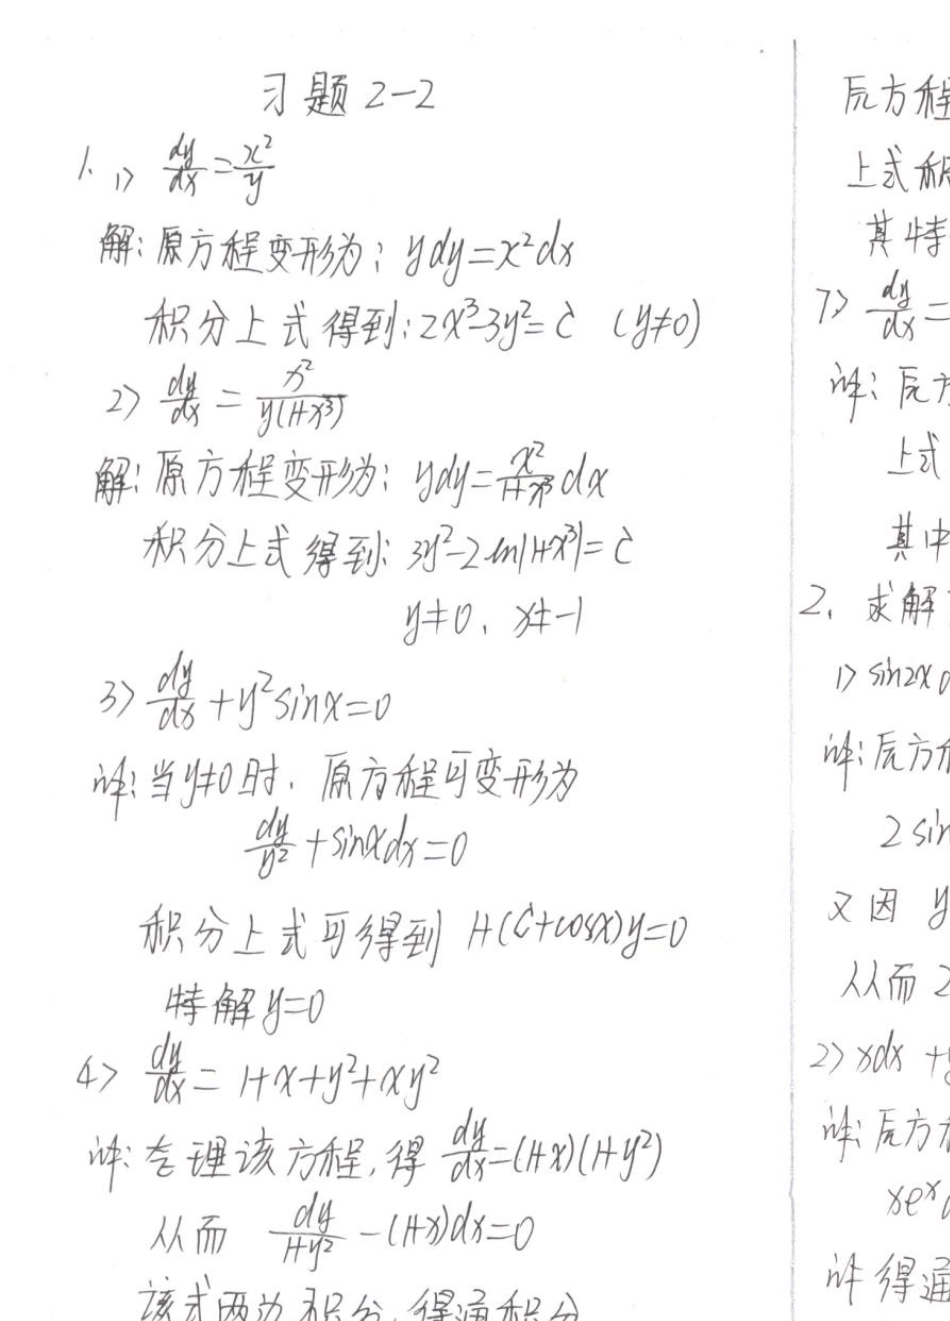 习题2-2
1. 1) dy/dx = x²/y
解:原方程变形为: ydy=x²dx
积分上式得到:2x³-3y²=C (y≠0)
2) dy/dx = x²/y(1+x³)
解:原方程变形为: ydy=x²/1+x³ dx
积分上式得到: 3y²-2ln|1+x³|=C
y≠0, x≠-1
3) dy/dx +y²sinx=0
解:当y≠0时, 原方程可变形为
dy/y² +sinxdx=0
积分上式可得到 1+(C+cosx)y=0
特解y=0
4) dy/dx = 1+x+y²+xy²
解:合理该方程,得 dy/dx=(1+x)(1+y²)
从而 dy/1+y² -(1+x)dx=0
该式两边积分,得通积分
原方程
上式积
其特
7) dy/dx =
解:原方
上式
其中
2. 求解
1) sin2x
解:原方程
2 sin
又因 y
从而 2
2) xdx +y
解:原方
xeˣ
解得通